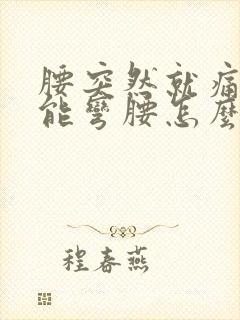 腰突然就痛
能彎腰怎麼
程春燕